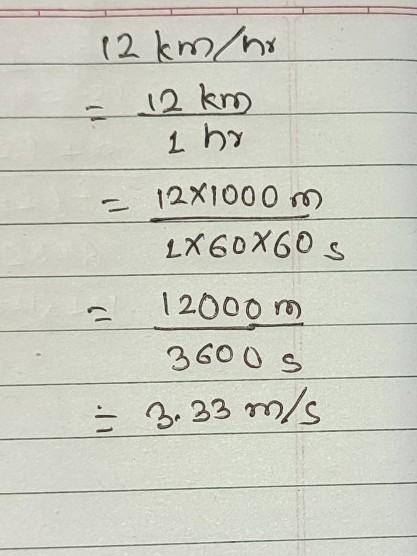 12 km/hr
= 12 km
1 hr
= 12×1000 m
1×60×60 s
= 12000 m
3600 s
≐ 3.33 m/s